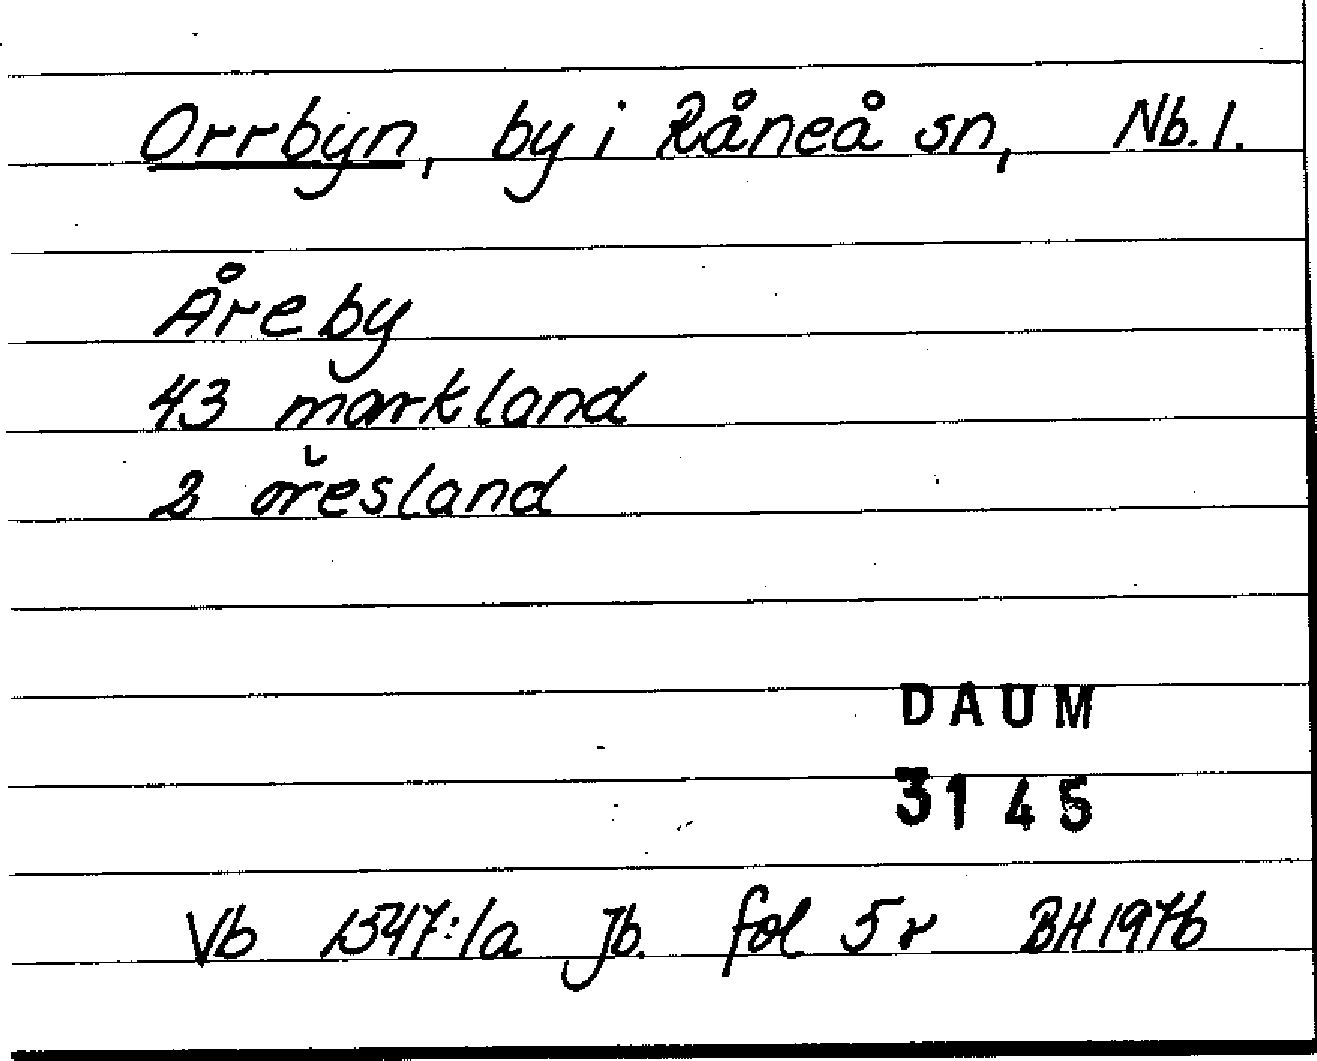 Orrbyn, by i Råneå sn, Nb. l.
Åreby
43 markland
2 öresland
DAUM
3145
Vb 1547:1a Jb. fol 5 r BH 1976